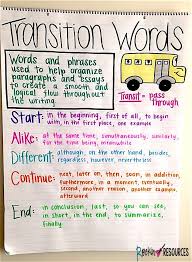 Transition Words
Words and phrases
used to help organize
paragraphs and essays
to create a smooth and
logical flow throughout
the writing.
Transit = pass
through
Start: in the beginning, first of all, to begin
with, in the first place, one example
Alike: at the same time, simultaneously, similarly,
for the time being, meanwhile
Different: although, on the other hand, besides,
regardless, however, nevertheless
Continue: next, later on, then, soon, in addition,
furthermore, in a moment, eventually,
second, another reason, another example,
afterward
End: in conclusion, last, so you can see,
in short, in the end, to summarize,
finally
RESOURCES